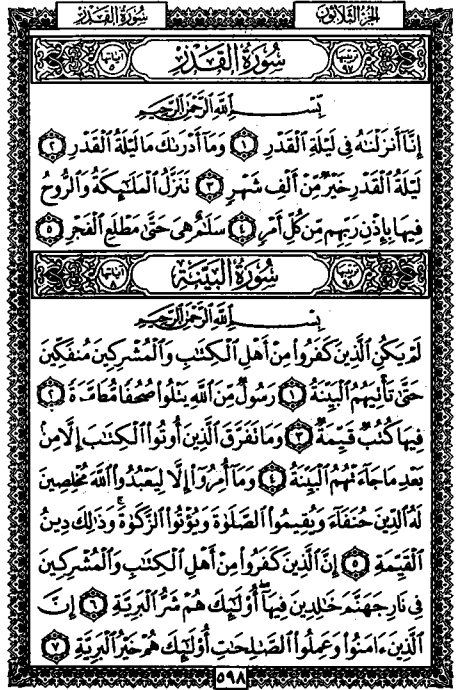 سُورَةُ القَدْرِ الجُزْءُ الثَّلَاثُونَ
ترتيبها ٩٧ سُورَةُ القَدْرِ آياتها ٥
بِسْمِ اللَّهِ الرَّحْمَٰنِ الرَّحِيمِ
إِنَّا أَنزَلْنَاهُ فِي لَيْلَةِ الْقَدْرِ ١ وَمَا أَدْرَاكَ مَا لَيْلَةُ الْقَدْرِ ٢
لَيْلَةُ الْقَدْرِ خَيْرٌ مِّنْ أَلْفِ شَهْرٍ ٣ تَنَزَّلُ الْمَلَائِكَةُ وَالرُّوحُ
فِيهَا بِإِذْنِ رَبِّهِم مِّن كُلِّ أَمْرٍ ٤ سَلَامٌ هِيَ حَتَّىٰ مَطْلَعِ الْفَجْرِ ٥
ترتيبها ٩٨ سُورَةُ البَيِّنَةِ آياتها ٨
بِسْمِ اللَّهِ الرَّحْمَٰنِ الرَّحِيمِ
لَمْ يَكُنِ الَّذِينَ كَفَرُوا مِنْ أَهْلِ الْكِتَابِ وَالْمُشْرِكِينَ مُنفَكِّينَ
حَتَّىٰ تَأْتِيَهُمُ الْبَيِّنَةُ ١ رَسُولٌ مِّنَ اللَّهِ يَتْلُوا صُحُفًا مُّطَهَّرَةً ٢
فِيهَا كُتُبٌ قَيِّمَةٌ ٣ وَمَا تَفَرَّقَ الَّذِينَ أُوتُوا الْكِتَابَ إِلَّا مِن
بَعْدِ مَا جَاءَتْهُمُ الْبَيِّنَةُ ٤ وَمَا أُمِرُوا إِلَّا لِيَعْبُدُوا اللَّهَ مُخْلِصِينَ
لَهُ الدِّينَ حُنَفَاءَ وَيُقِيمُوا الصَّلَوٰةَ وَيُؤْتُوا الزَّكَوٰةَ ۚ وَذَٰلِكَ دِينُ
الْقَيِّمَةِ ٥ إِنَّ الَّذِينَ كَفَرُوا مِنْ أَهْلِ الْكِتَابِ وَالْمُشْرِكِينَ
فِي نَارِ جَهَنَّمَ خَالِدِينَ فِيهَا ۚ أُولَٰئِكَ هُمْ شَرُّ الْبَرِيَّةِ ٦ إِنَّ
الَّذِينَ ءَامَنُوا وَعَمِلُوا الصَّالِحَاتِ أُولَٰئِكَ هُمْ خَيْرُ الْبَرِيَّةِ ٧
٥٩٨